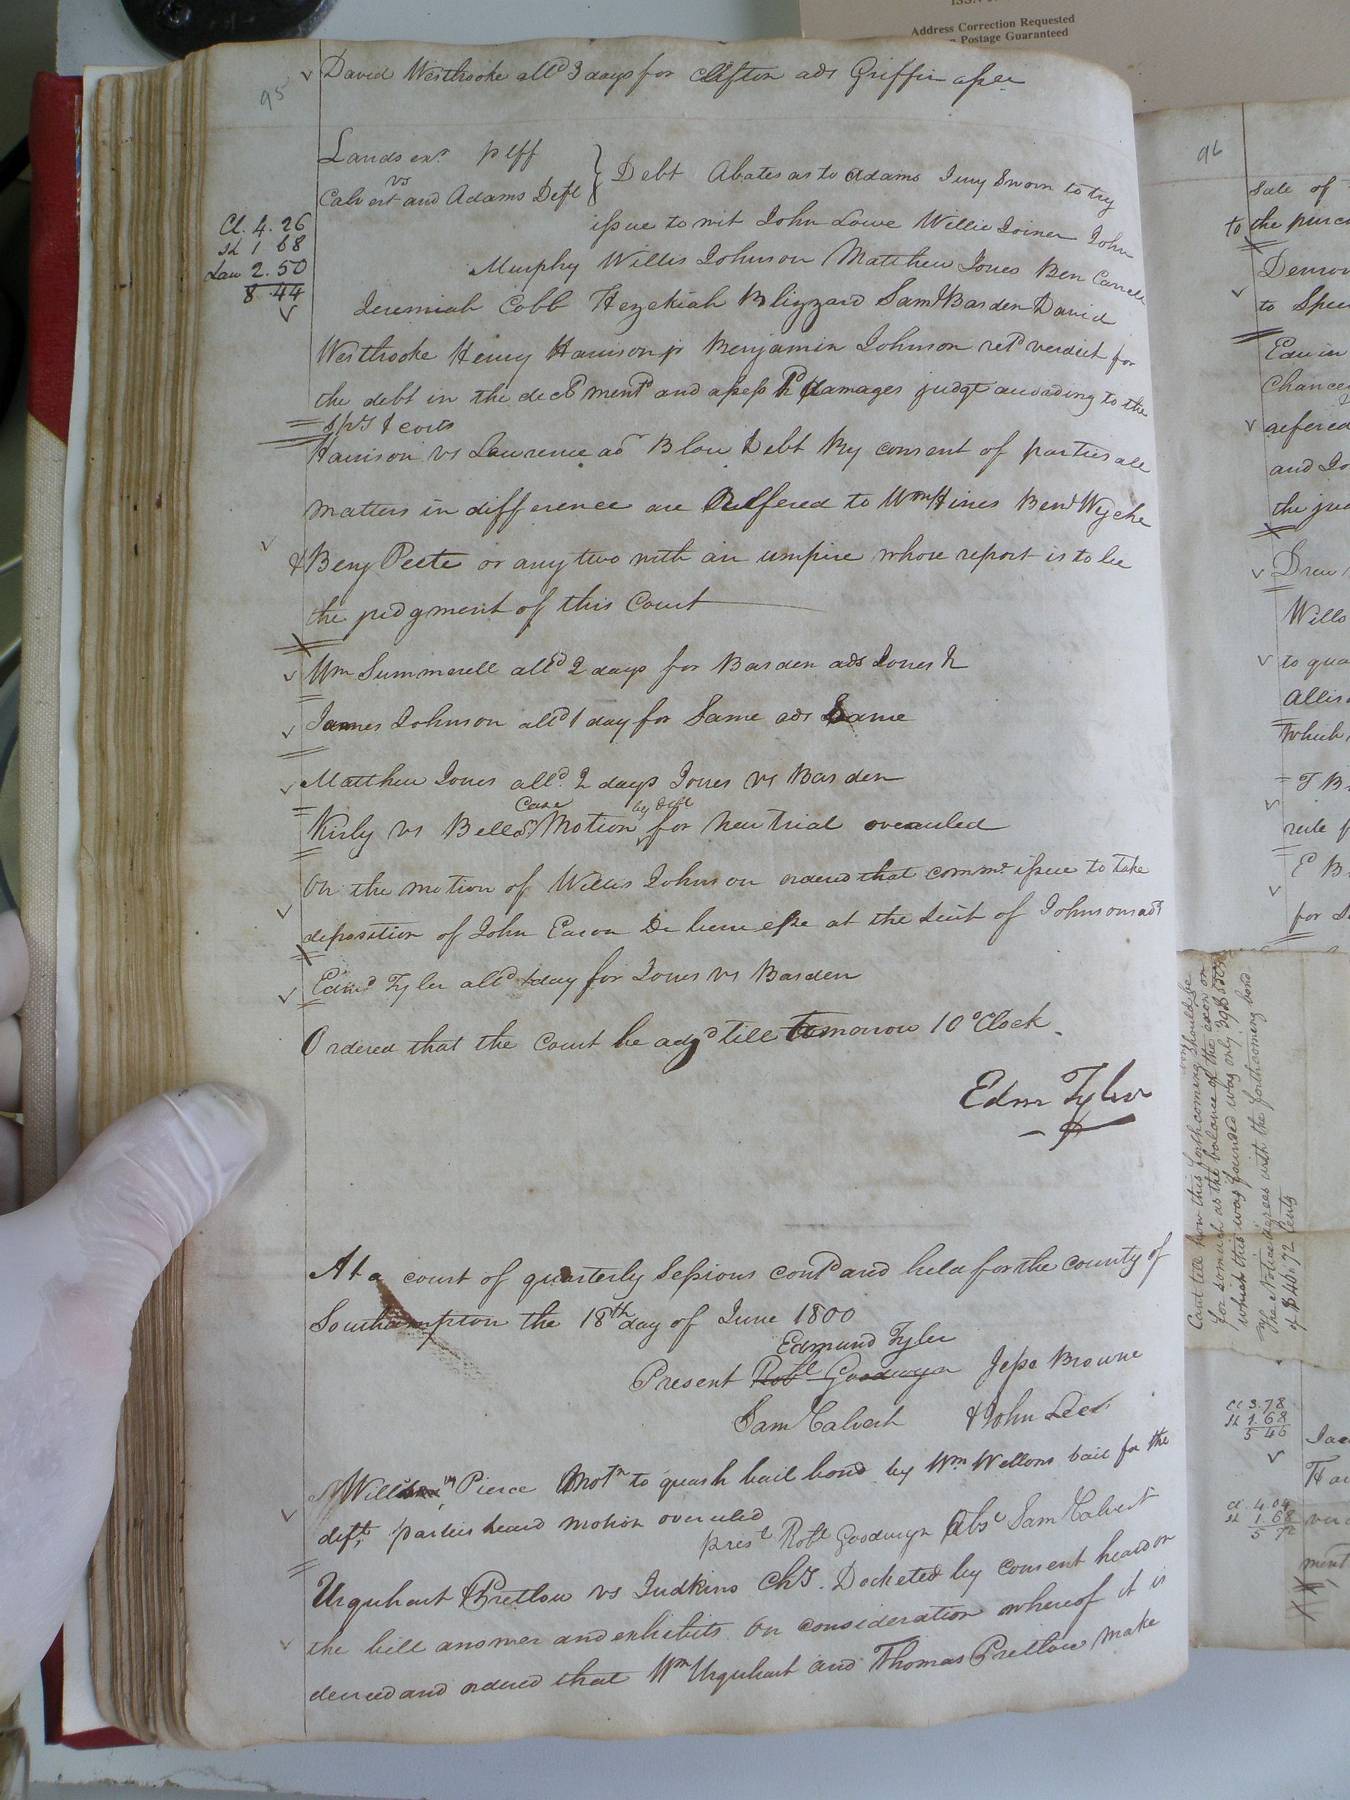 Address Correction Requested
Postage Guaranteed
95
David Westbrooke alld 3 days for Clifton ads Griffin assee
Lands exr plff
vs
Calvert and Adams Deft
Debt Abates as to Adams Jury Sworn to try
Cl. 4. 26
Sh 1 68
Law 2. 50
8 44
issue to wit John Lowe Willie Joiner John
Murphy Willis Johnson Matthew Jones Ben Carrell
Jeremiah Cobb Hezekiah Blizzard Saml Barden David
Westbrooke Henry Harrison jr Benjamin Johnson retd verdict for
the debt in the decl mentd and assess 1d damages judgt according to the
spt & costs
Harrison vs Lawrence ad Blow Debt By consent of parties all
matters in difference are Reffered to Wm Hines Benj Wyche
& Benj Peete or any two with an umpire whose report is to be
the judgment of this Court
Wm Summerell alld 2 days for Barden ads Jones h
James Johnson alld 1 day for Same ads Same
Matthew Jones alld. 2 days Jones vs Barden
Case by deft
Kirby vs Bell ad Motion for new trial overruled
On the motion of Willis Johnson ordered that commn issue to take
deposition of John Eason De bene esse at the Suit of Johnson ads
Edmd Tyler alld 1 day for Jones vs Barden
Ordered that the Court be adjd till tomorrow 10 oClock.
Edm Tyler
At a court of quarterly Sessions contd and held for the county of
Southampton the 18th day of June 1800
Edmund Tyler
Present Robt Goodwyn Jesse Browne
Saml Calvert & John Lee
Pierce Motn to quash bail bond by Wm Wellons bail for the
deft, parties heard motion overruled
prest Robt Goodwyn Abst Saml Calvert
Urquhart & Pretlow vs Judkins Chy. Docketed by consent heard on
the bill answer and exhibits On consideration whereof it is
decreed and ordered that Wm Urquhart and Thomas Pretlow make
96
Sale of
to the purch
to Spee
Edwin
Chancery
refered
and Jo
the jud
Drew
Wills
to qua
Allis
which
for
Cant tell how this forthcoming bond should be
for somuch as the balance of the exon on
which this was founded was only
The Notice agrees with the forthcoming bond
of $46.72 Cents
Cl 3.78
Sh 1.68
5 46
Cl. 4.04
Sh 1.68
5 72